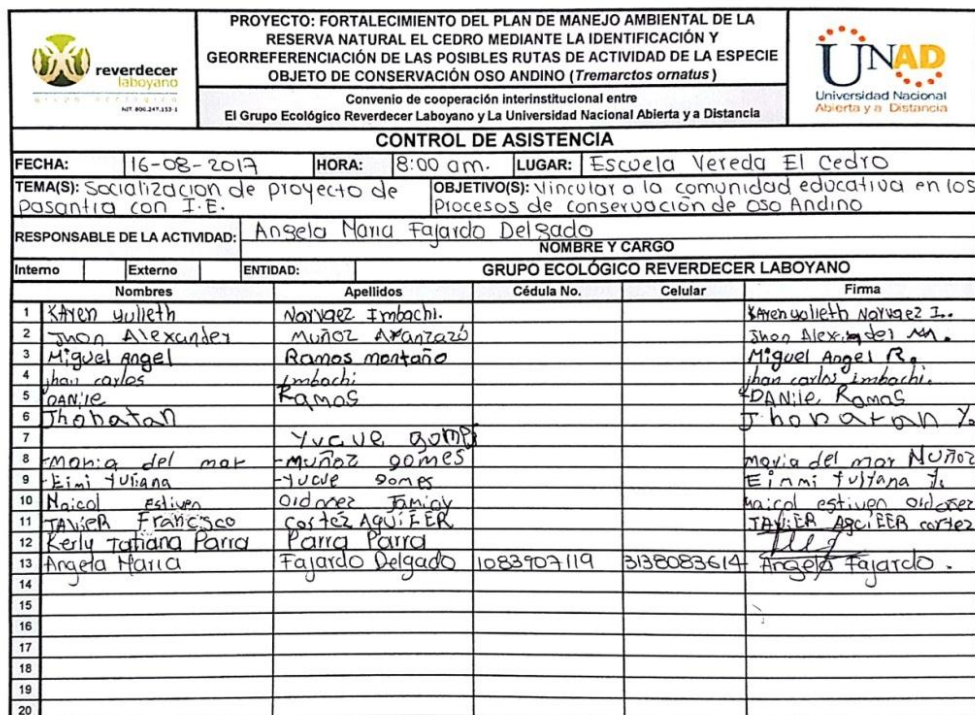 reverdecer
laboyano
grupo ecológico
NIT. 800.247.153-1
PROYECTO: FORTALECIMIENTO DEL PLAN DE MANEJO AMBIENTAL DE LA
RESERVA NATURAL EL CEDRO MEDIANTE LA IDENTIFICACIÓN Y
GEORREFERENCIACIÓN DE LAS POSIBLES RUTAS DE ACTIVIDAD DE LA ESPECIE
OBJETO DE CONSERVACIÓN OSO ANDINO (Tremarctos ornatus)
Convenio de cooperación interinstitucional entre
El Grupo Ecológico Reverdecer Laboyano y La Universidad Nacional Abierta y a Distancia
UNAD
Universidad Nacional
Abierta y a Distancia
CONTROL DE ASISTENCIA
FECHA: 16-08-2017 HORA: 8:00 am. LUGAR: Escuela Vereda El Cedro
TEMA(S): Socializacion de proyecto de
Pasantia con I.E.
OBJETIVO(S): Vincular a la comunidad educativa en los
Procesos de conservación de oso Andino
RESPONSABLE DE LA ACTIVIDAD: Angela Maria Fajardo Delgado
NOMBRE Y CARGO
Interno Externo ENTIDAD: GRUPO ECOLÓGICO REVERDECER LABOYANO
Nombres Apellidos Cédula No. Celular Firma
1 KAren yulieth Narvaez Imbachi. KAren yulieth Narvaez I..
2 Jhon Alexander Muñoz Jhon Alexander
3 Miguel Angel Ramos montaño Miguel Angel R.
4 jhan carlos Imbachi jhan carlos imbachi.
5 DANiLe Ramos DANiLe Ramos
6 Jhonatan Jhonatan Y.
7 Yucue gomes
8 -maria del mar -muñoz gomes maria del mar Muñoz
9 -Eimi Yuliana -Yucue gomes Einmi Yuliana
10 Maicol estiven Ordoñez maicol estiven Ordoñez
11 JAVIER Francisco Cortez AGUiEER JAVIER cortez
12 Kerly Tatiana Parra Parra Parra
13 Angela Maria Fajardo Delgado 1083907119 3138083614 Angela Fajardo.
14
15
16
17
18
19
20